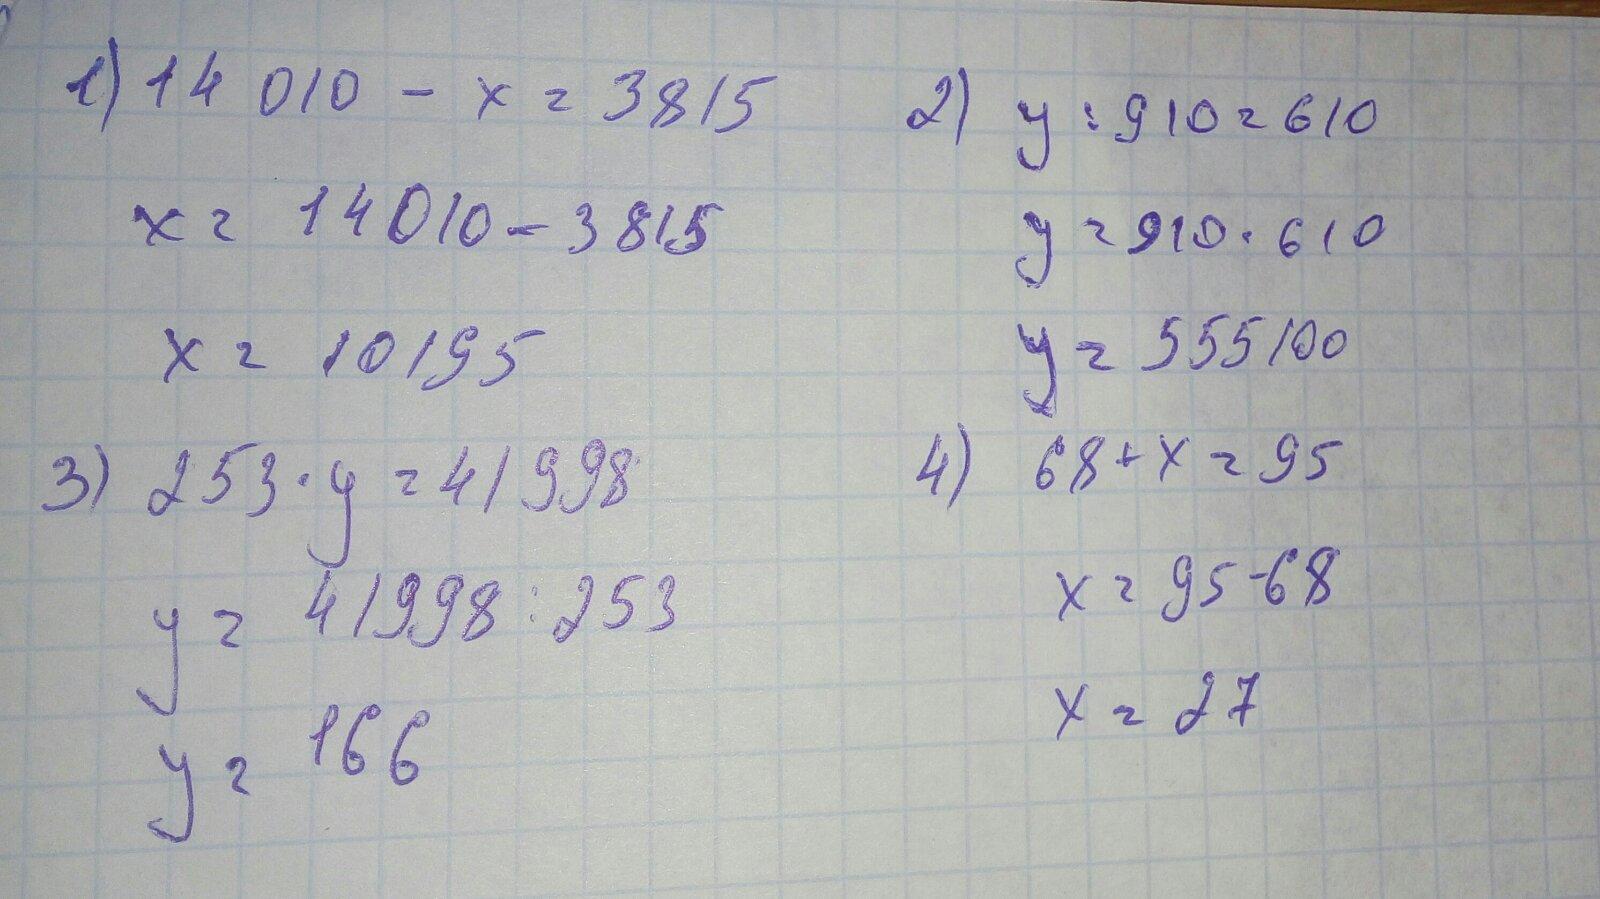 1) 14 010 - x = 3815
x = 14010 - 3815
x = 10195
2) y : 910 = 610
y = 910 · 610
y = 555100
3) 253 · y = 41998
y = 41998 : 253
y = 166
4) 68 + x = 95
x = 95 - 68
x = 27